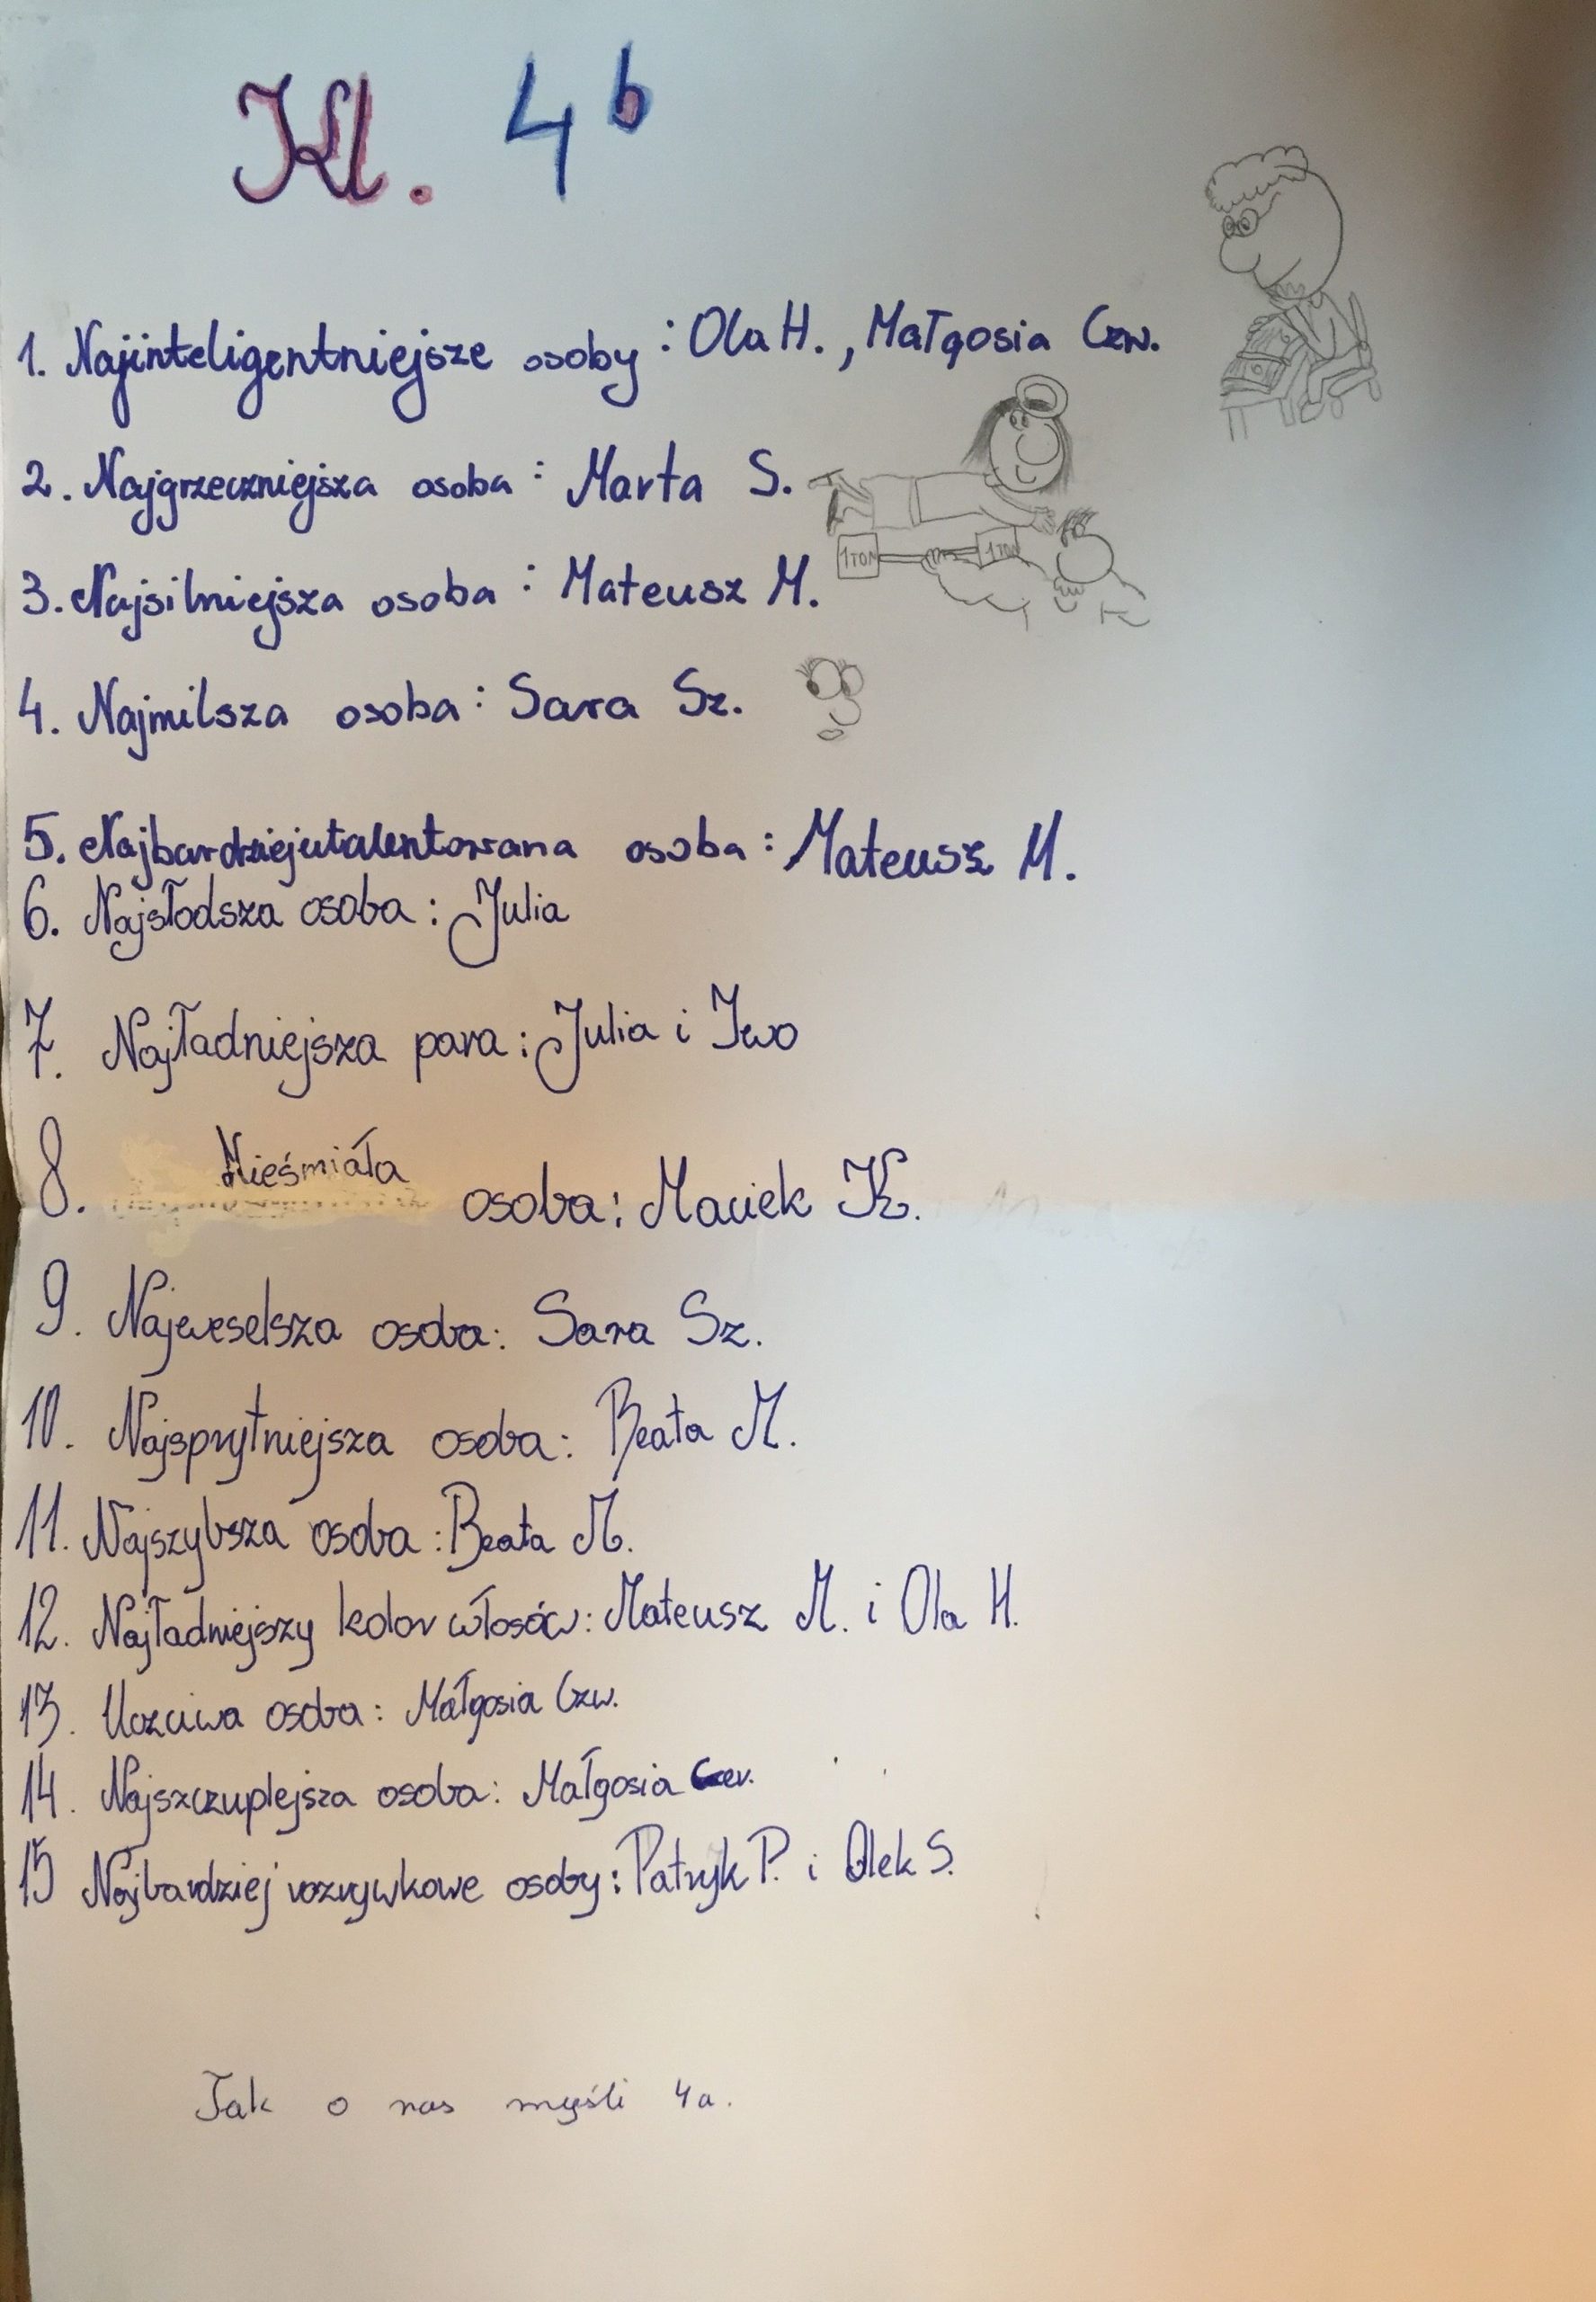 Kl. 4b
1. Najinteligentniejsze osoby : Ola H. , Małgosia Czw.
2. Najgrzeczniejsza osoba : Marta S.
1TON 1TON
3. Najsilniejsza osoba : Mateusz M.
4. Najmilsza osoba : Sara Sz.
5. Najbardziejutalentowana osoba : Mateusz M.
6. Najsłodsza osoba : Julia
7. Najładniejsza para : Julia i Iwo
8. Nieśmiała osoba : Maciek K.
9. Najweselsza osoba : Sara Sz.
10. Najsprytniejsza osoba : Beata M.
11. Najszybsza osoba : Beata M.
12. Najładniejszy kolor włosów : Mateusz M. i Ola H.
13. Uczciwa osoba : Małgosia Czw.
14. Najszczuplejsza osoba : Małgosia
15 Najbardziej rozrywkowe osoby : Patryk P. i Olek S.
Tak o nas myśli 4a.